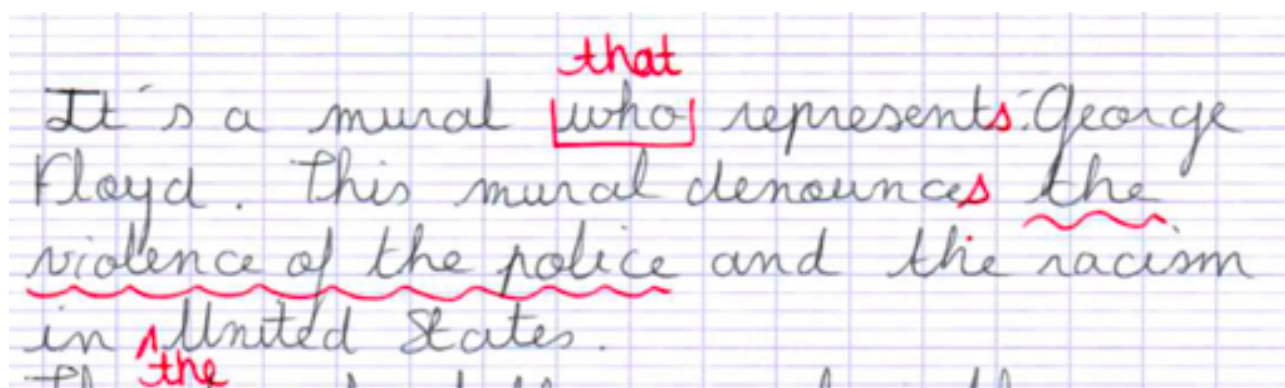 that
It's a mural who represents George
Floyd. This mural denounces the
violence of the police and the racism
in United States.
the